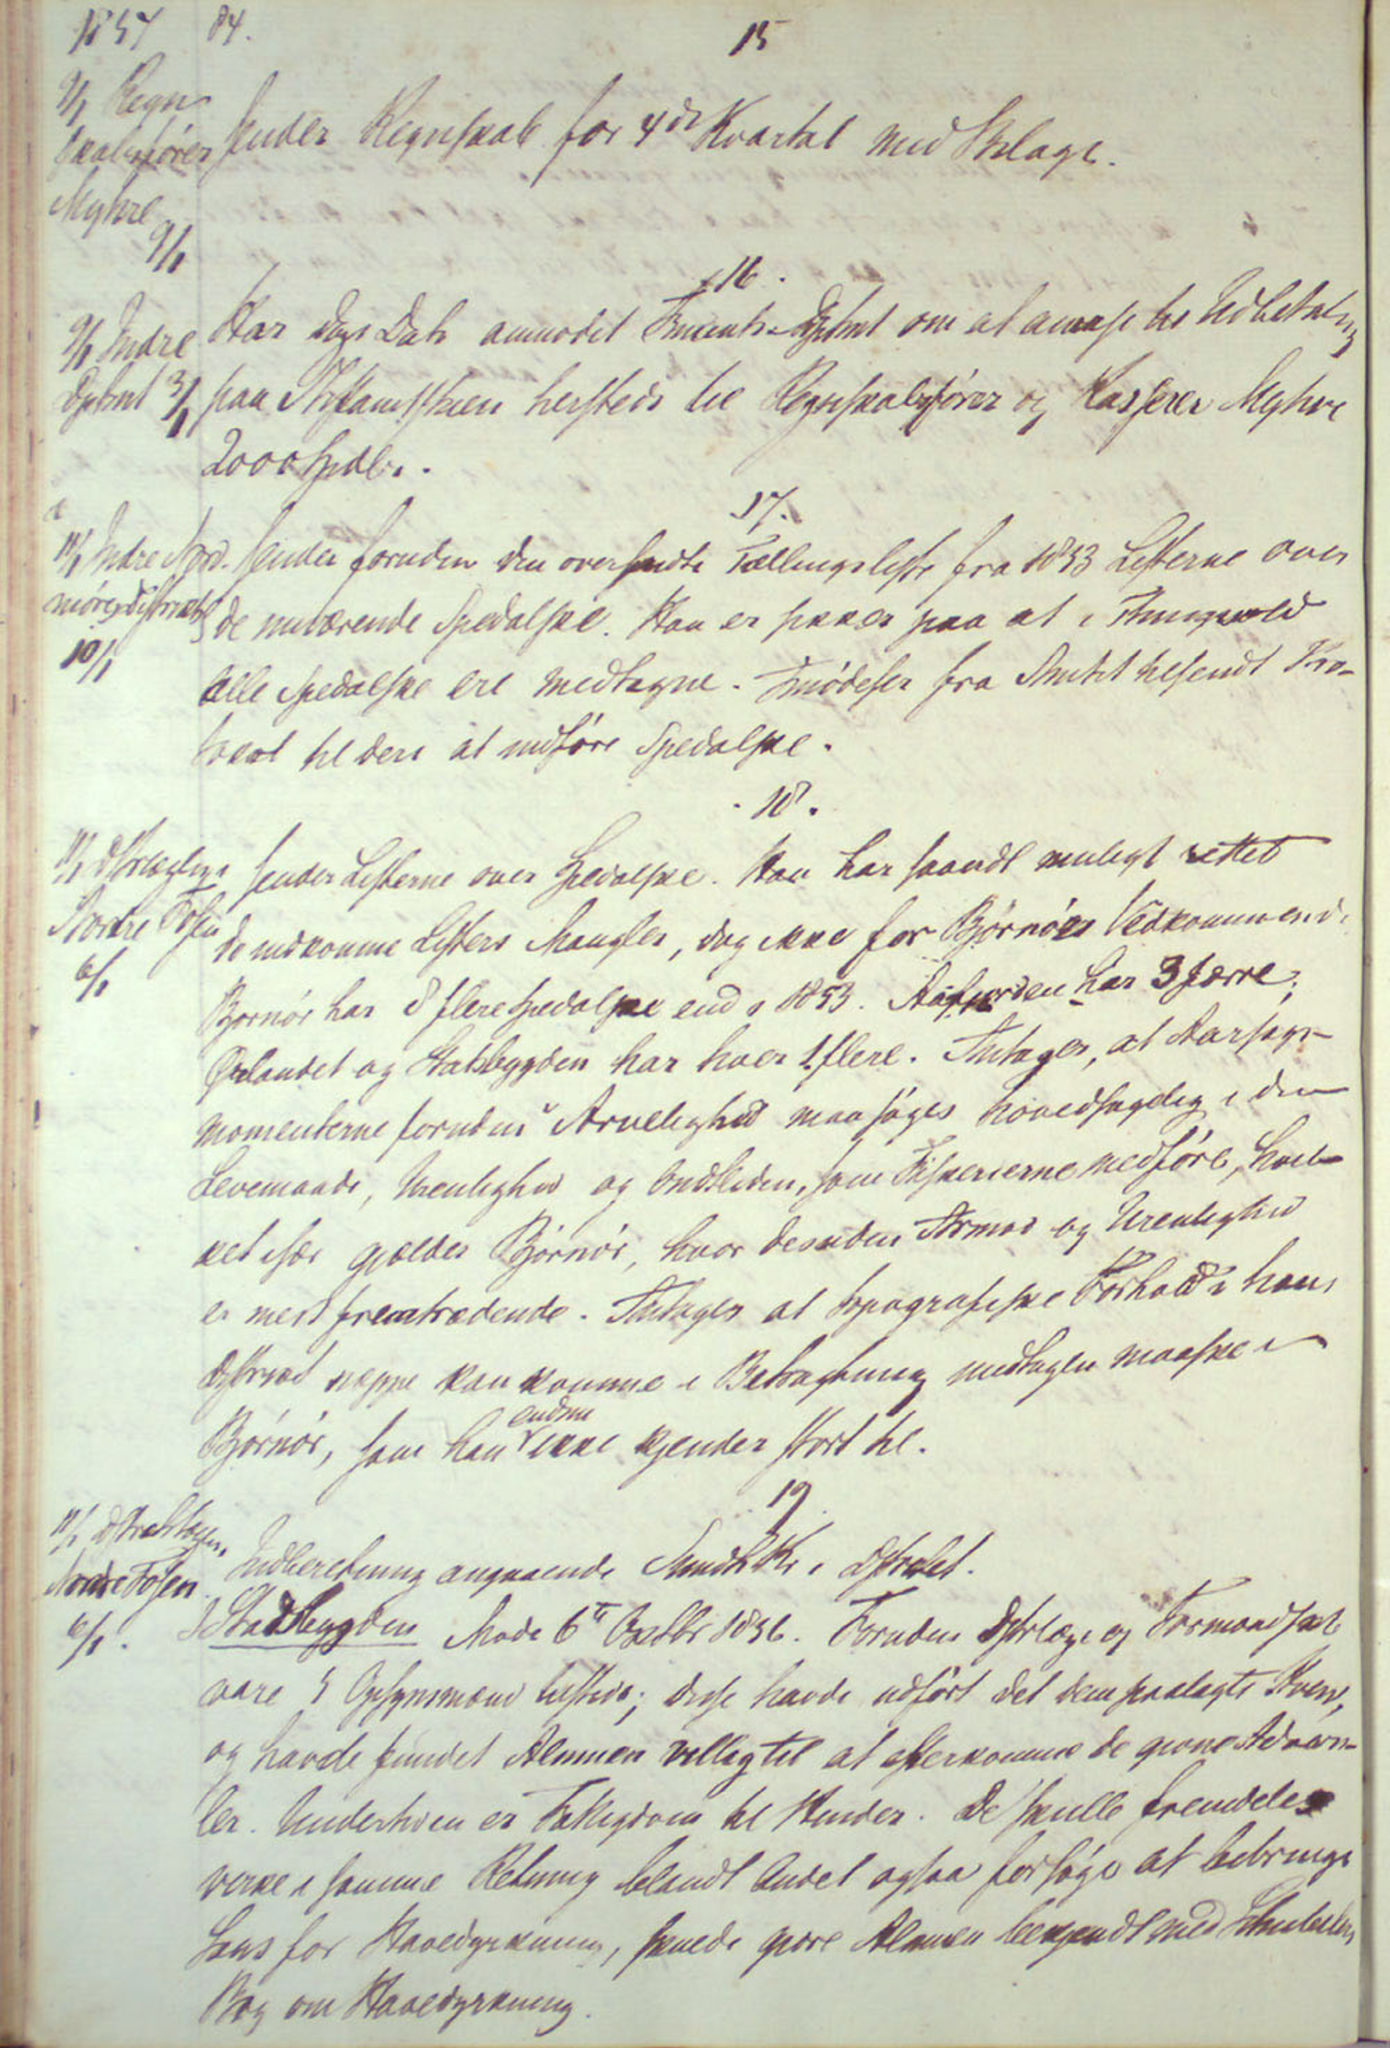 1857 84.
15
9/1 Regn
skabsfører
Myhre
9/1
sender Regnskab for 4de Kvartal med Bilage.
16.
9/1 Indre
Dptmt 3/1
Har Dags Dato anmodet Finants-Dptmt om at anvise til Udbetaling
paa Stiftamtstuen hersteds til Regnskabsfører og Kasserer Myhre
2000 Spdlr.
17.
11/1 Indre Nord-
møres Distrikt
10/1
sender foruden den oversendte Tællingsliste fra 1853 Listerne over
de nuværende Spedalske. Han er sikker paa at i
alle Spedalske ere medtagne. Imødeser fra Amtet tilsendt Pro-
tokol til deri at indføre Spedalske.
18.
11/1 Distrlægen
Nordre Fosen
6/1
sender Listerne over Spedalske. Han har saavidt muligt rettet
de indkomne Listers Mangler, dog ikke for Bjørnørs Vedkommende
Bjørnør har 8 flere Spedalske end i 1853. Aafjorden har 3 færre;
Ørlandet og Stadsbygden har hver 1 flere. Antager, at Aarsags-
momenterne foruden i Arvelighed maa søges hovedsagelig i den
Levemaade, Urenlighed og Ondtliden, som Fiskerierne medføre, hvil-
ket især gjælder Bjørnør, hvor desuden Armod og Urenlighed
er mest fremtrædende. Antager at topografiske Forhold i hans
Distrikt neppe kan komme i Betragtning undtagen maaske i
Bjørnør, som han endnu ikke kjender stort til.
19.
11/1 Distriktslægen
Nordre Fosen
6/1.
Indberetning angaaende Sundh.K. i Distriktet.
Stadsbygden Møde 6te Octbr 1856. Foruden Distrlæge og Formandskab
vare 5 Opsynsmænd tilstede; disse havde udført det dem paalagte Hverv,
og havde fundet Almuen villig til at efterkomme de givne Advars-
ler. Undertiden er Fattigdom til Hinder. De skulle fremdeles
virke i samme Retning blandt Andet ogsaa forsøge at bibringe
Sans for Havedyrkning, samt gjøre Almuen bekjendt med Schübelers
Bog om Havedyrkning.